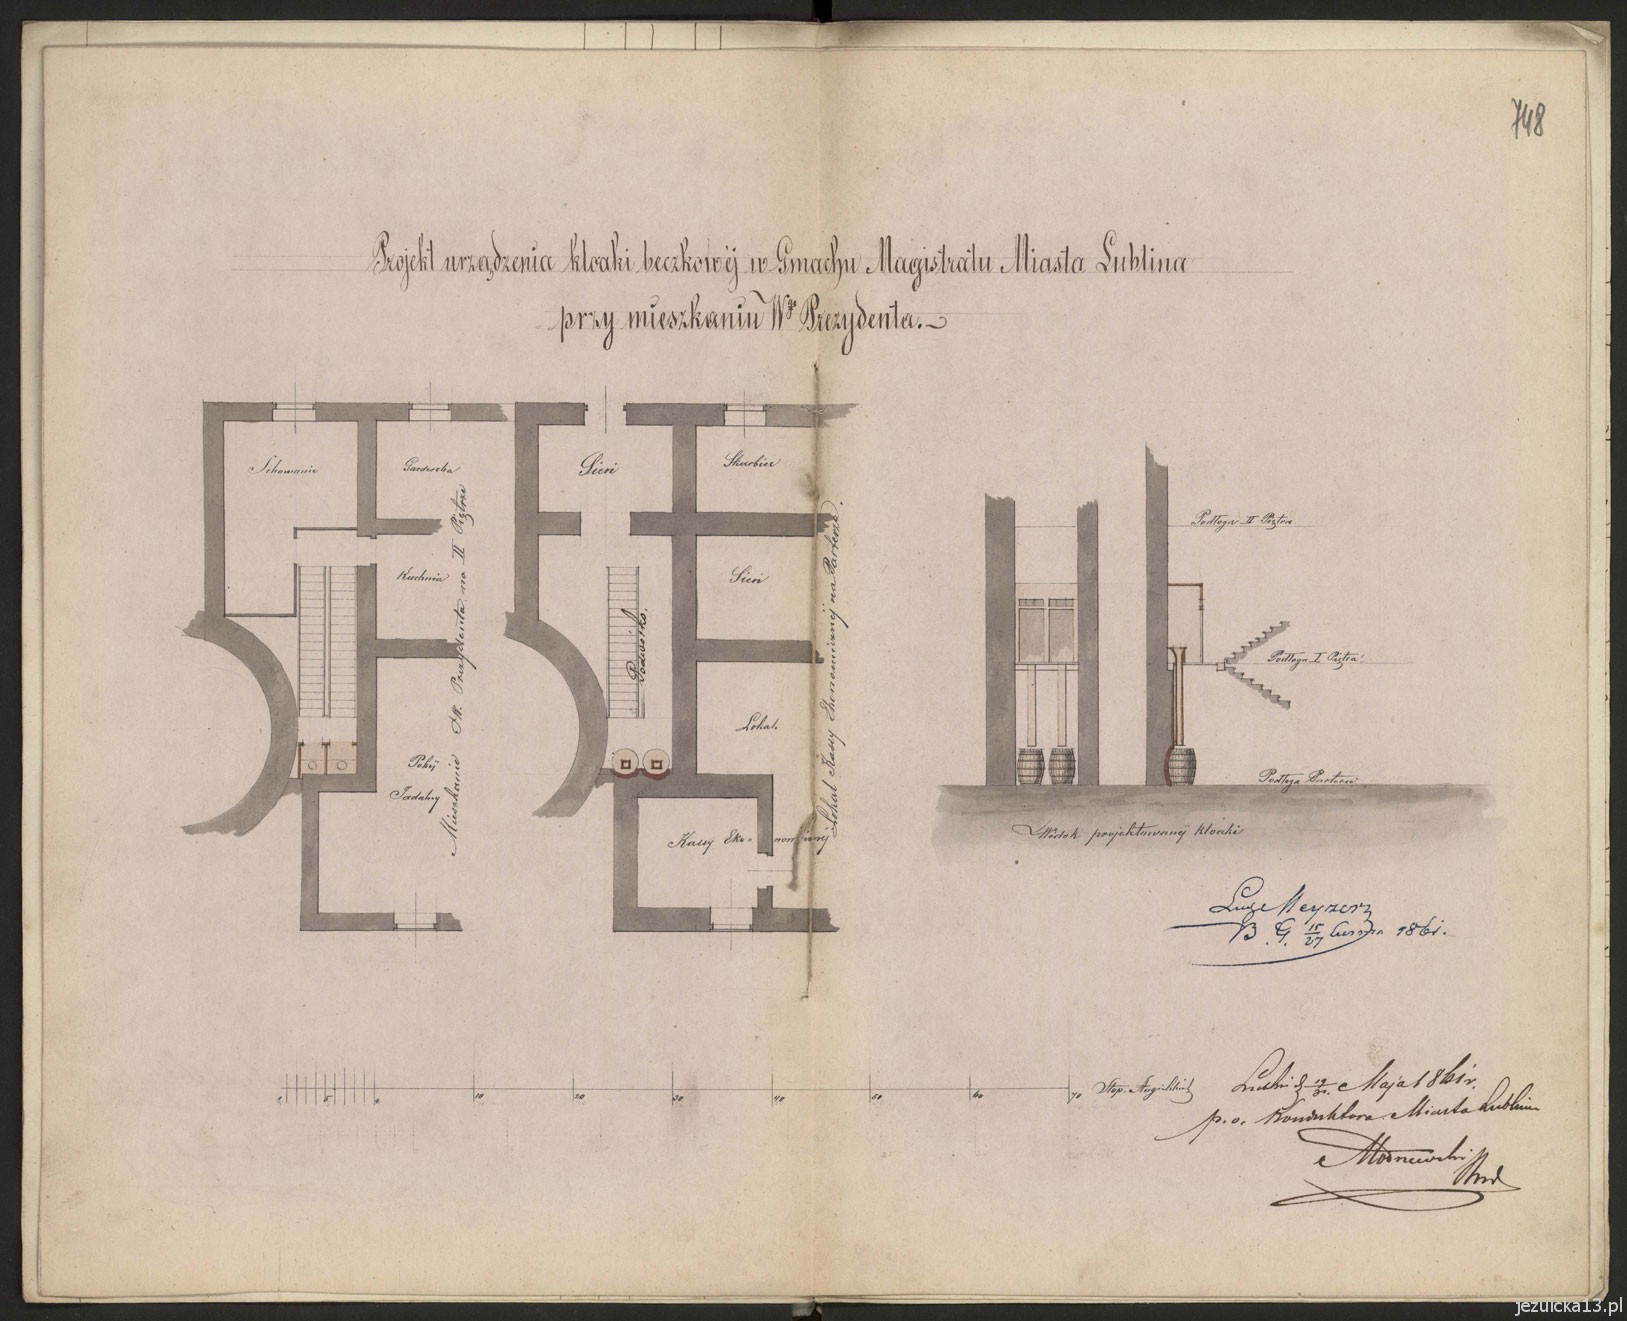 748
Projekt urządzenia kloaki beczkowéj w Gmachu Magistratu Miasta Lublina
przy mieszkaniu Wgo Prezydenta.
Schowanie
Garderoba
Kuchnia
Pokój
Jadalny
Mieszkanie JW. Prezydenta na II Piętrze
Sień
Skarbiec
Sień
Podwórko.
Lokal.
Kassy Ekonomicznéj
Lokal Kassy Ekonomicznéj na Parterze.
Podłoga II Piętra
Podłoga I Piętra
Podłoga Parteru
Widok projektowanéj kloaki
B. G. 15/27 Czerwca 1861.
10 20 30 40 50 60 70 Stop. Angielskich
Maja 1861 r.
p. o. Konduktora Miasta Lublina
jezuicka13.pl